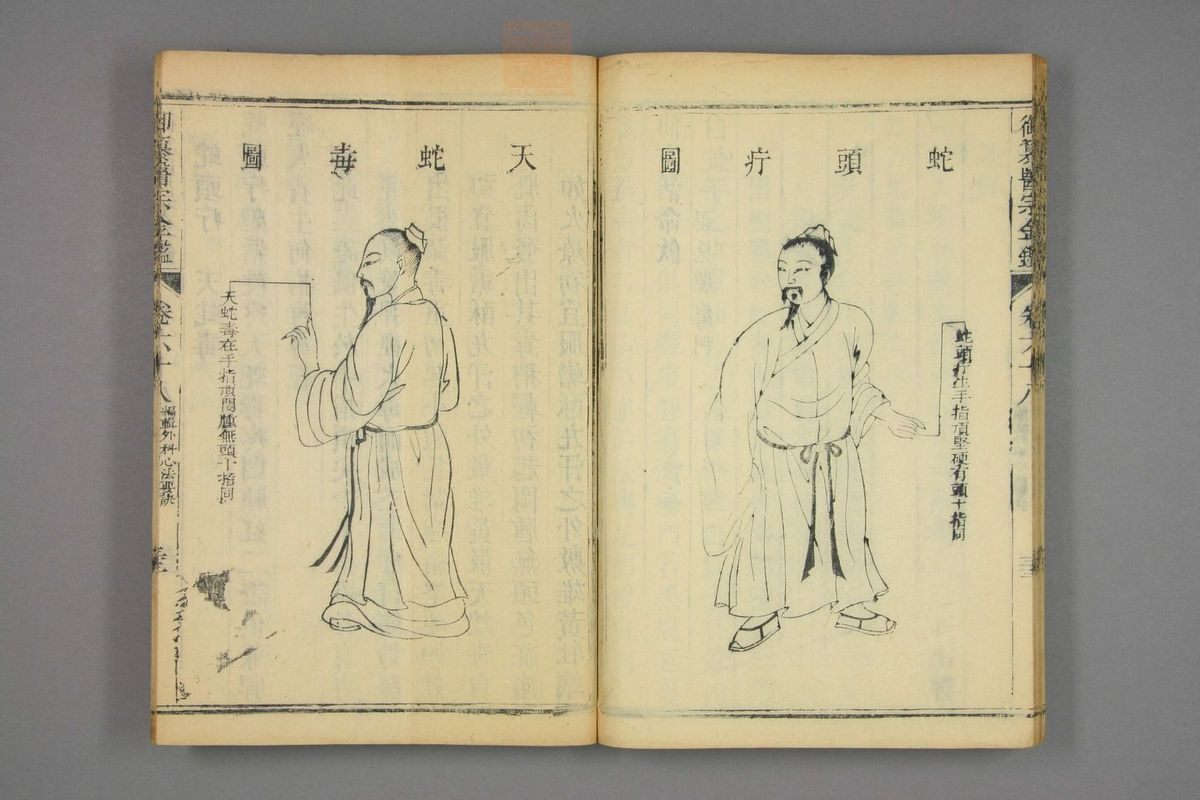 蛇頭疔圖
蛇頭疔生手指頂堅硬有頭十指同
御纂醫宗金鑑
卷六十八
天蛇毒圖
天蛇毒在手指頂悶腫無頭十指同
御纂醫宗金鑑
卷六十八
編輯外科心法要訣